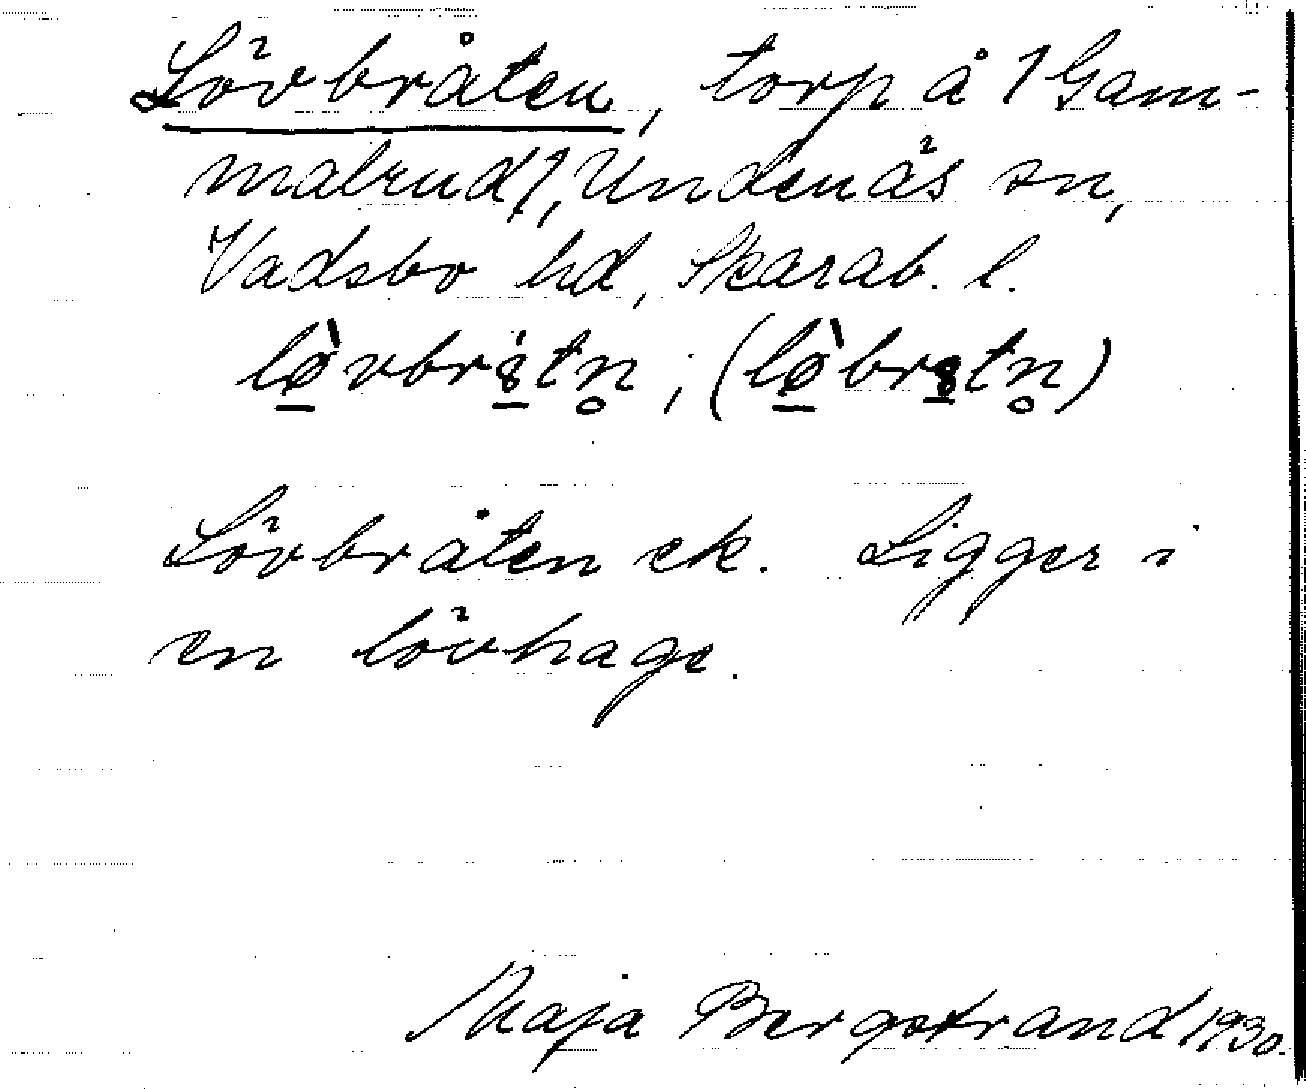 Lövbråten, torp å 1 Gam-
malrud 1, Undenäs sn,
Vadsbo hd, Skarab. l.
lø̀vbrs̍tn̥ ; (lø̀brstn̥)
Lövbråten ek. Ligger i
en lövhage.
Maja Bergstrand 1930.